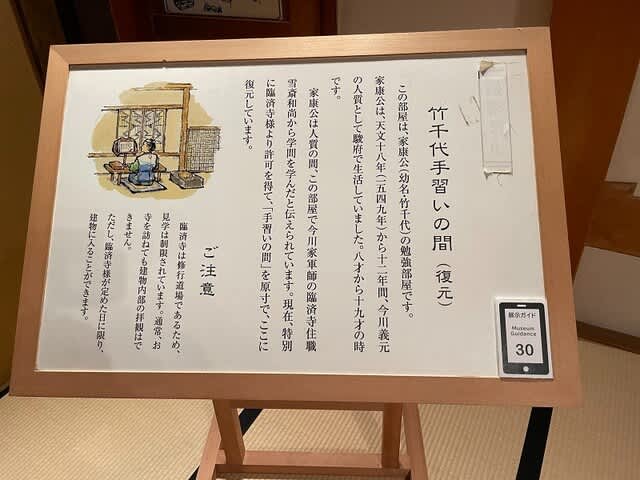 竹千代手習いの間（復元）
この部屋は、家康公（幼名・竹千代）の勉強部屋です。
家康公は、天文十八年（一五四九年）から十二年間、今川義元
の人質として駿府で生活していました。八才から十九才の時
です。
家康公は人質の間、この部屋で今川家軍師の臨済寺住職
雪斎和尚から学問を学んだと伝えられています。現在、特別
に臨済寺様より許可を得て、「手習いの間」を原寸で、ここに
復元しています。
ご注意
臨済寺は修行道場であるため、
見学は制限されています。通常、お
寺を訪ねても建物内部の拝観はで
きません。
ただし、臨済寺様が定めた日に限り、
建物に入ることができます。
展示ガイド
Museum
Guidance
30